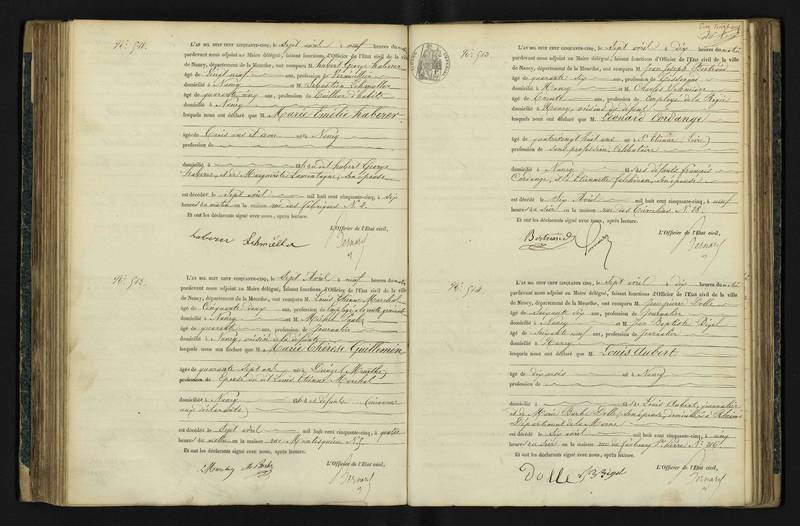 No. 511.
L'AN MIL HUIT CENT CINQUANTE-CINQ, le sept avril à neuf heures du matin
pardevant nous adjoint au Maire délégué, faisant fonctions d'Officier de l'Etat civil de la ville
de Nancy, département de la Meurthe, ont comparu M. hubert George haberer
âgé de vingt neuf ans, profession de
domicilié à Nancy et M. Sébastien Schmeller
âgé de quarante cinq ans, profession de Tailleur d'habits
domicilié à Nancy
lesquels nous ont déclaré que M. Marie Emelie haberer
âgée de trois ans et demi née à Nancy
profession de
domiciliée à fille de hubert George
haberer, et de Marguerite Lamontagne, son épouse
est décédée le sept avril mil huit cent cinquante-cinq, à six
heures du matin en la maison rue des fabriques No. 2.
Et ont les déclarants signé avec nous, après lecture.
L'Officier de l'Etat civil,
haberer Schmeller Bernard
No. 512.
L'AN MIL HUIT CENT CINQUANTE-CINQ, le sept Avril à neuf heures du matin
pardevant nous adjoint au Maire délégué, faisant fonctions d'Officier de l'Etat civil de la ville
de Nancy, département de la Meurthe, ont comparu M. Louis Etienne Marchal
âgé de Cinquante cinq ans, profession de Employé
domicilié à Nancy et M. Michel
âgé de quarante ans, profession de Journalier
domicilié à Nancy, voisin de la défunte
lesquels nous ont déclaré que M. Marie Thérèse Guillemin
âgée de quarante sept ans née à Meurthe
profession Epouse du dit Louis Etienne Marchal
domiciliée à Nancy
aux déclarants
est décédée le sept avril mil huit cent cinquante-cinq, à quatre
heures du matin en la maison rue Montesquieu No. 7
Et ont les déclarants signé avec nous, après lecture.
L'Officier de l'Etat civil,
Bernard
No. 513.
L'AN MIL HUIT CENT CINQUANTE-CINQ, le sept avril à dix heures du matin
pardevant nous adjoint au Maire délégué, faisant fonctions d'Officier de l'Etat civil de la ville
de Nancy, département de la Meurthe, ont comparu M. Jean Joseph
âgé de quarante six ans, profession de
domicilié à Nancy et M. Charles
âgé de trente ans, profession de Employé de la Régie
domicilié à Nancy, voisins du défunt
lesquels nous ont déclaré que M. Léonard Cordange
âgé de quatre vingt huit ans né à St. Etienne (Loire)
profession de sans profession, Célibataire
domicilié à Nancy fils des défunts français
Cordange, et de Etiennette son épouse
est décédé le six Avril mil huit cent cinquante-cinq, à neuf
heures du soir en la maison rue No. 28.
Et ont les déclarants signé avec nous, après lecture.
L'Officier de l'Etat civil,
Bernard
No. 514.
L'AN MIL HUIT CENT CINQUANTE-CINQ, le sept avril à dix heures du matin
pardevant nous adjoint au Maire délégué, faisant fonctions d'Officier de l'Etat civil de la ville
de Nancy, département de la Meurthe, ont comparu M. Jean pierre Dolle
âgé de soixante six ans, profession de Journalier
domicilié à Nancy et M. Jean Baptiste Bigel
âgé de soixante neuf ans, profession de Journalier
domicilié à Nancy
lesquels nous ont déclaré que M. Louis Aubert
âgé de dix mois né à Nancy
profession de
domicilié à fils de Louis Aubert, journalier
et de Marie Barbe Dolle, son épouse, domiciliés à Rheims
Département de la Marne
est décédé le six avril mil huit cent cinquante-cinq, à cinq
heures du soir en la maison rue du faubourg St. Pierre No. 
Et ont les déclarants signé avec nous, après lecture.
L'Officier de l'Etat civil,
Dolle Bigel Bernard